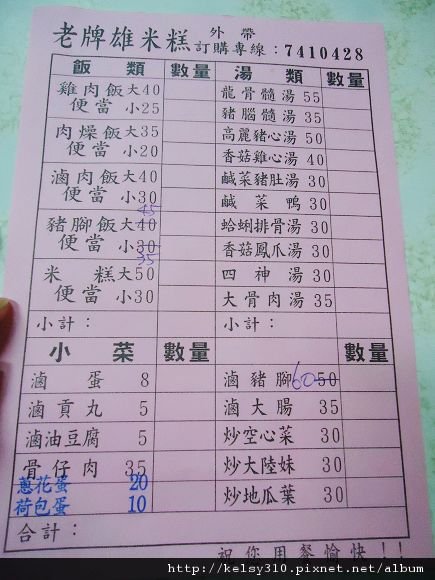 老牌雄米糕 外帶訂購專線：7410428
飯類 數量 湯類 數量
雞肉飯大40
便當 小25
肉燥飯大35
便當 小20
滷肉飯大40
便當 小30
豬腳飯大40 45
便當 小30 35
米糕大50
便當 小30
小計：
龍骨髓湯 55
豬腦髓湯 35
高麗豬心湯 50
香菇雞心湯 40
鹹菜豬肚湯 30
鹹菜鴨 30
蛤蜊排骨湯 30
香菇鳳爪湯 30
四神湯 30
大骨肉湯 35
小計：
小菜 數量 數量
滷蛋 8
滷貢丸 5
滷油豆腐 5
骨仔肉 35
蔥花蛋 20
荷包蛋 10
滷豬腳 60 50
滷大腸 35
炒空心菜 30
炒大陸妹 30
炒地瓜葉 30
合計：
祝你用餐愉快！！
http://kelsy310.pixnet.net/album